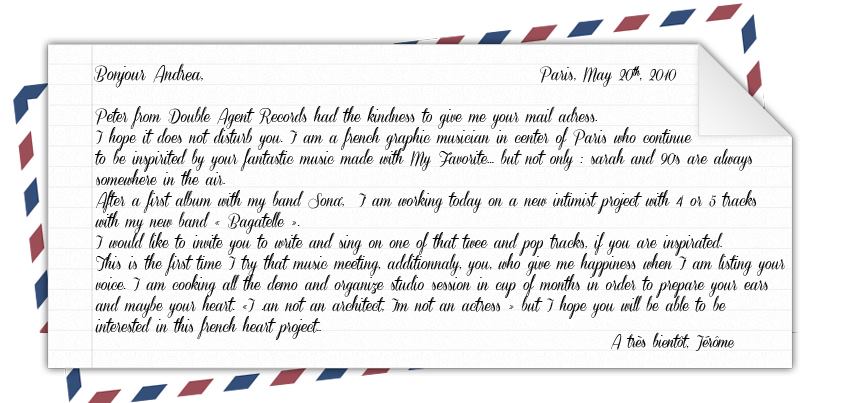 Bonjour Andrea,
Paris, May 20th, 2010
Peter from Double Agent Records had the kindness to give me your mail adress.
I hope it does not disturb you. I am a french graphic musician in center of Paris who continue
to be inspirited by your fantastic music made with My Favorite... but not only : sarah and 90s are always
somewhere in the air.
After a first album with my band Sona, I am working today on a new intimist project with 4 or 5 tracks
with my new band « Bagatelle ».
I would like to invite you to write and sing on one of that twee and pop tracks, if you are inspirated.
This is the first time I try that music meeting, additionnaly, you, who give me happiness when I am listing your
voice. I am cooking all the demo and organize studio session in cup of months in order to prepare your ears
and maybe your heart. «I an not an architect, I'm not an actress » but I hope you will be able to be
interested in this french heart project...
A très bientôt, Jérôme